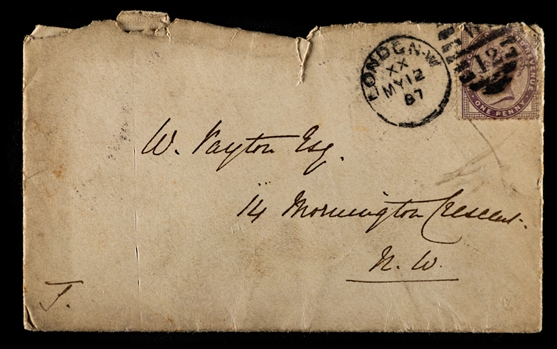 LONDON.W
XX
MY 12
87
12
ONE PENNY
W. Vayton Esq.
14 Mornington Crescent.
N. W.
J.